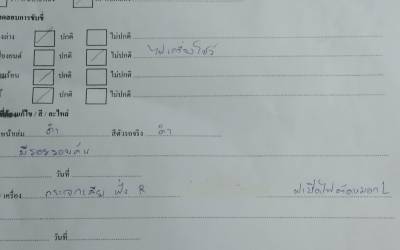 ทดสอบการขับขี่
ปกติ ไม่ปกติ
ปกติ ไม่ปกติ ไฟเครื่องโชว์
ปกติ ไม่ปกติ
ปกติ ไม่ปกติ
ที่ต้องแก้ไข / สี / อะไหล่
ดำ สีตัวรถจริง ดำ
มีรอยรอบคัน
วันที่
เครื่อง กระจกเสีย ฝั่ง R ฝาปิดไฟตัดหมอก L
วันที่